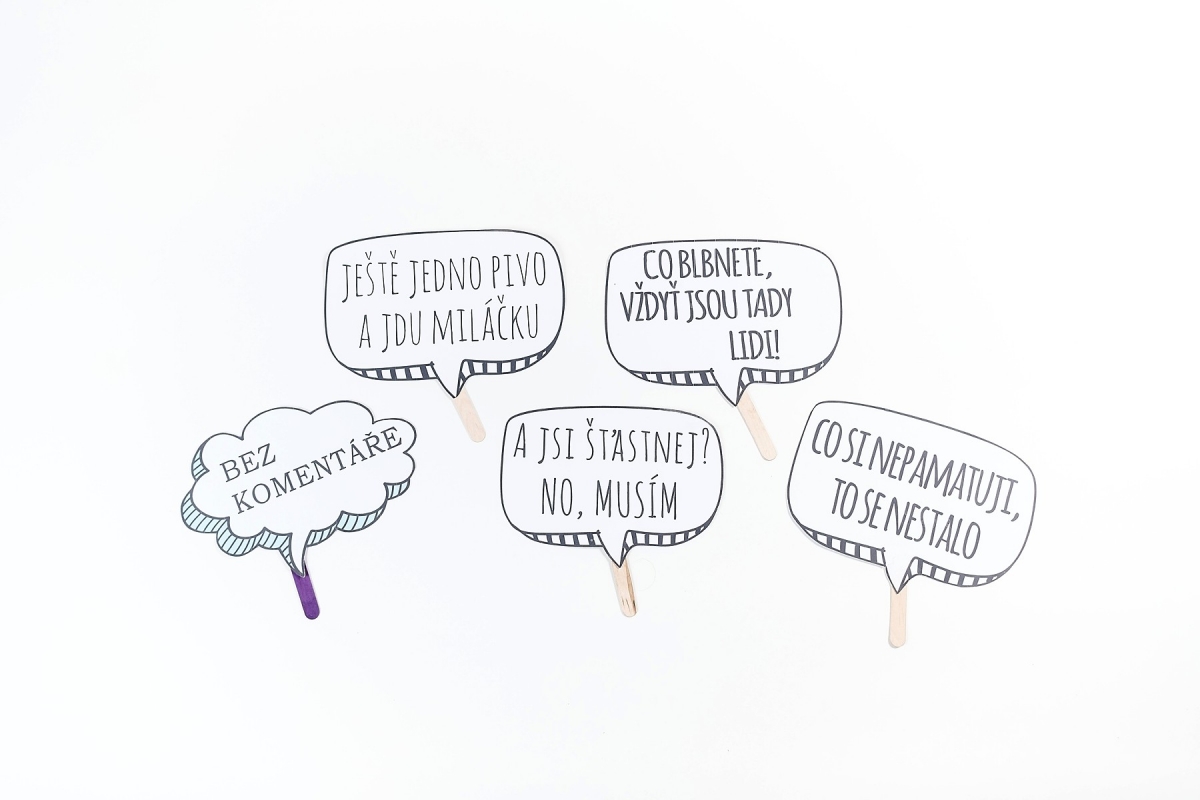 JEŠTĚ JEDNO PIVO
A JDU MILÁČKU
CO BLBNETE,
VŽDYŤ JSOU TADY
LIDI!
BEZ
KOMENTÁŘE
A JSI ŠŤASTNEJ?
NO, MUSÍM
CO SI NEPAMATUJI,
TO SE NESTALO